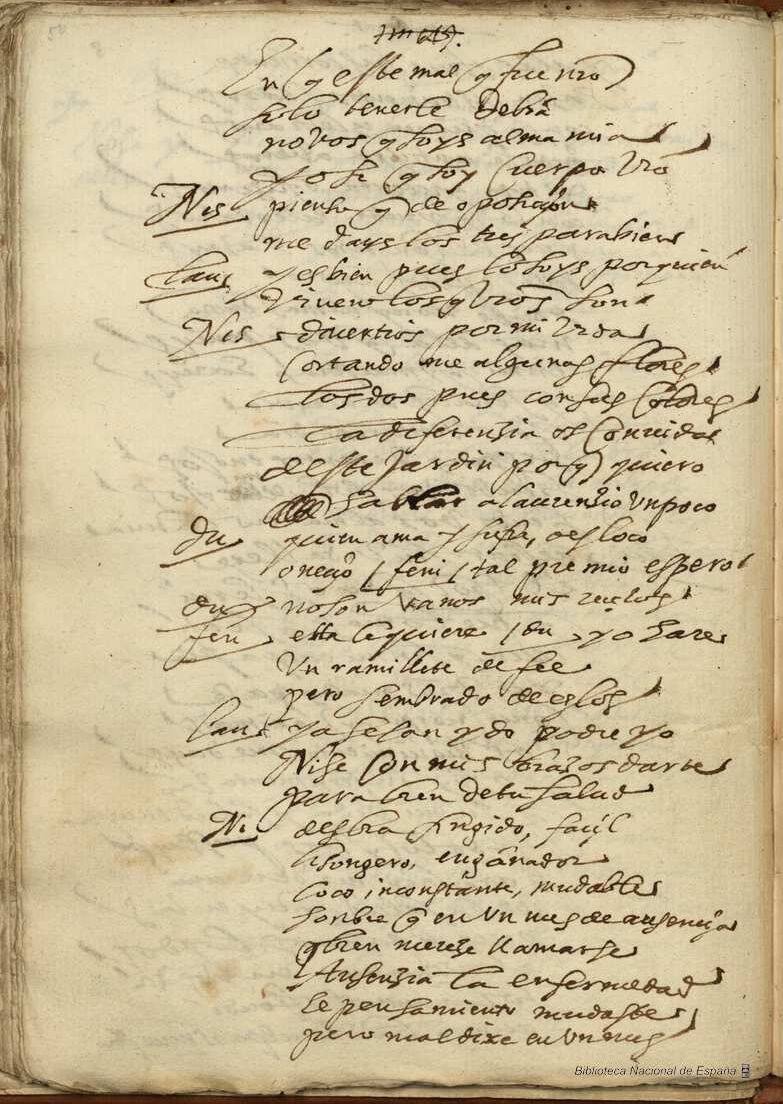 En q̃ este mal q̃ fue nr̃o
solo tenerle debia
no vos q̃ soys alma mia
yo si q̃ soy Cuerpo vrõ
Nis pienso q̃ de oposiçion
me days los tres parabien
lau y es bien pues lo soys por quien
viuen los q̃ vrõs son
Nis diuertios por mi vida
Cortando me algunas flores
los dos pues con sus Colores
la diferenzia os Conuida
deste Jardin porq̃ quiero
hablar a laurenzio vn poco
du quien ama y sufre, o es loco
o neçio / feni / tal premio espero
du no son vanos mis rezelos
fen ella le quiere / du / yo hare
Vn ramillete de fee
pero sembrado de zelos
lau ya se han ydo podre yo
Nise Con mis brazos darte
parabien de tu salud
Ni desbia fingido, façil
lisongero, engañador
loco inconstante, mudable
honbre q̃ en vn mes de ausençia
q̃ bien mereze llamarse
Ausenzia la enfermedad
le pensamiento mudaste
pero mal dixe en vn mes
Biblioteca Nacional de España